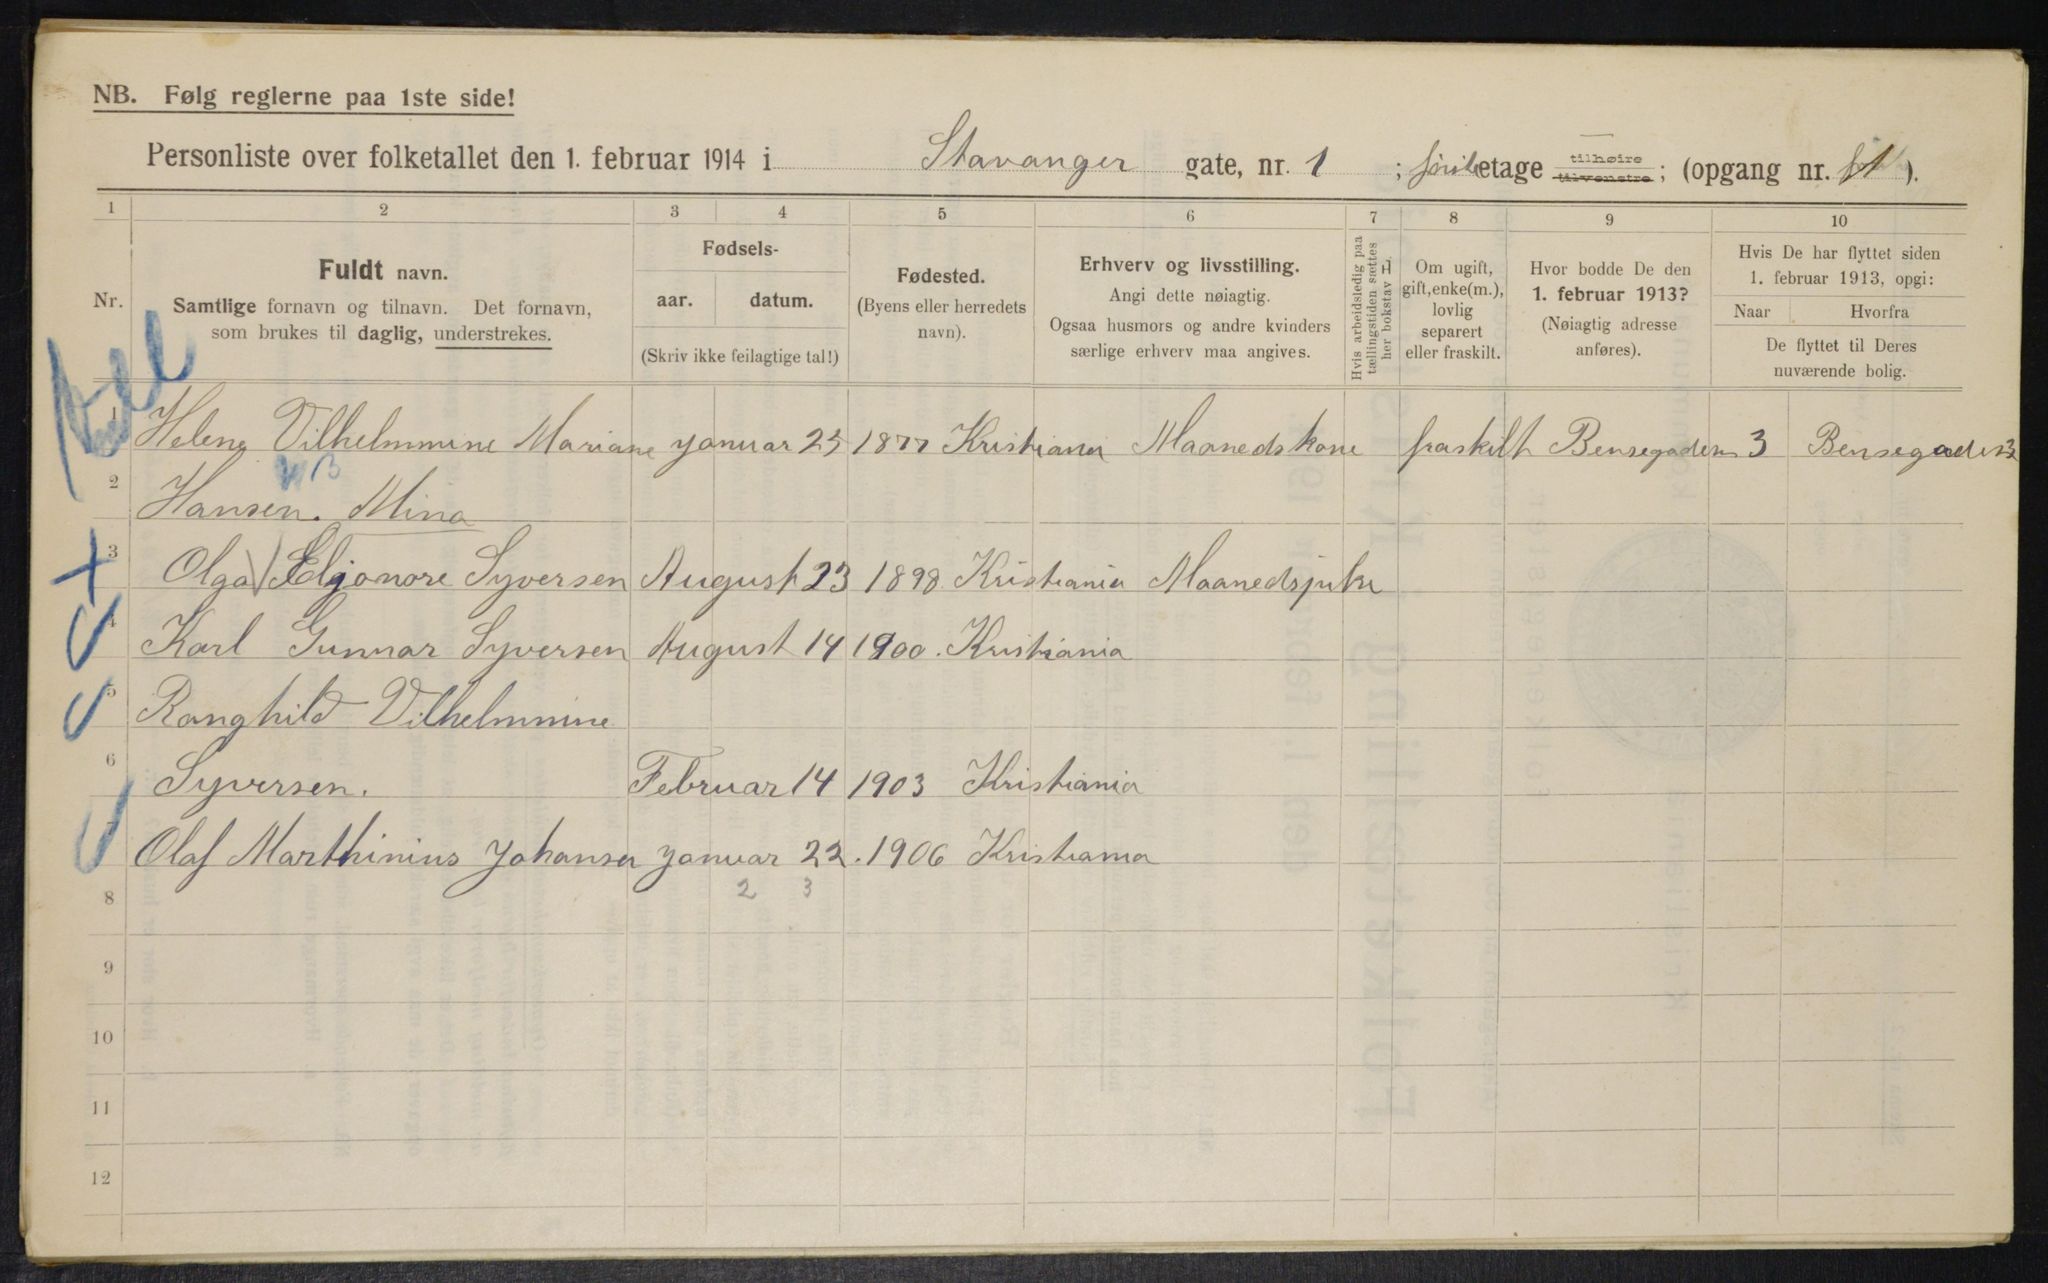 NB. Følg reglerne paa 1ste side!
Personliste over folketallet den 1. februar 1914 i Stavanger gate, nr. 1 ; etage tilhøire tilvenstre ; (opgang nr. 1 ).
1 2 3 4 5 6 7 8 9 10
Nr.
Fuldt navn.
Samtlige fornavn og tilnavn. Det fornavn,
som brukes til daglig, understrekes.
Fødsels-
aar. datum.
(Skriv ikke feilagtige tal!)
Fødested.
(Byens eller herredets
navn).
Erhverv og livsstilling.
Angi dette nøiagtig.
Ogsaa husmors og andre kvinders
særlige erhverv maa angives.
Hvis arbeidsledig paa
tællingstiden sættes
her bokstav L
Om ugift,
gift, enke(m.),
lovlig
separert
eller fraskilt.
Hvor bodde De den
1. februar 1913?
(Nøiagtig adresse
anføres).
Hvis De har flyttet siden
1. februar 1913, opgi:
Naar Hvorfra
De flyttet til Deres
nuværende bolig.
1 Helene Vilhelmmine Mariane januar 25 1877 Kristiania Maanedskone fraskilt Bensegaden 3 Bensegaden 3
2 Hansen. Mina
3 Olga Eljonore Syversen August 23 1898 Kristiania
4 Karl Gunnar Syversen August 14 1900. Kristiania
5 Ranghild Vilhelmmine
6 Syversen. Februar 14 1903 Kristiania
7 Olaf Marthinius Johansen januar 22. 1906 Kristiania
2 3
8
9
10
11
12